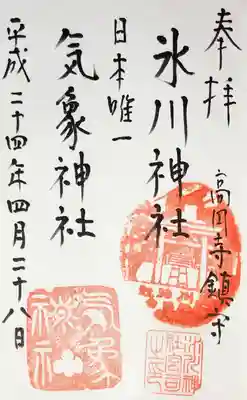 奉拝
高円寺鎮守
氷川神社
日本唯一
気象神社
平成二十四年四月二十八日
気象神社